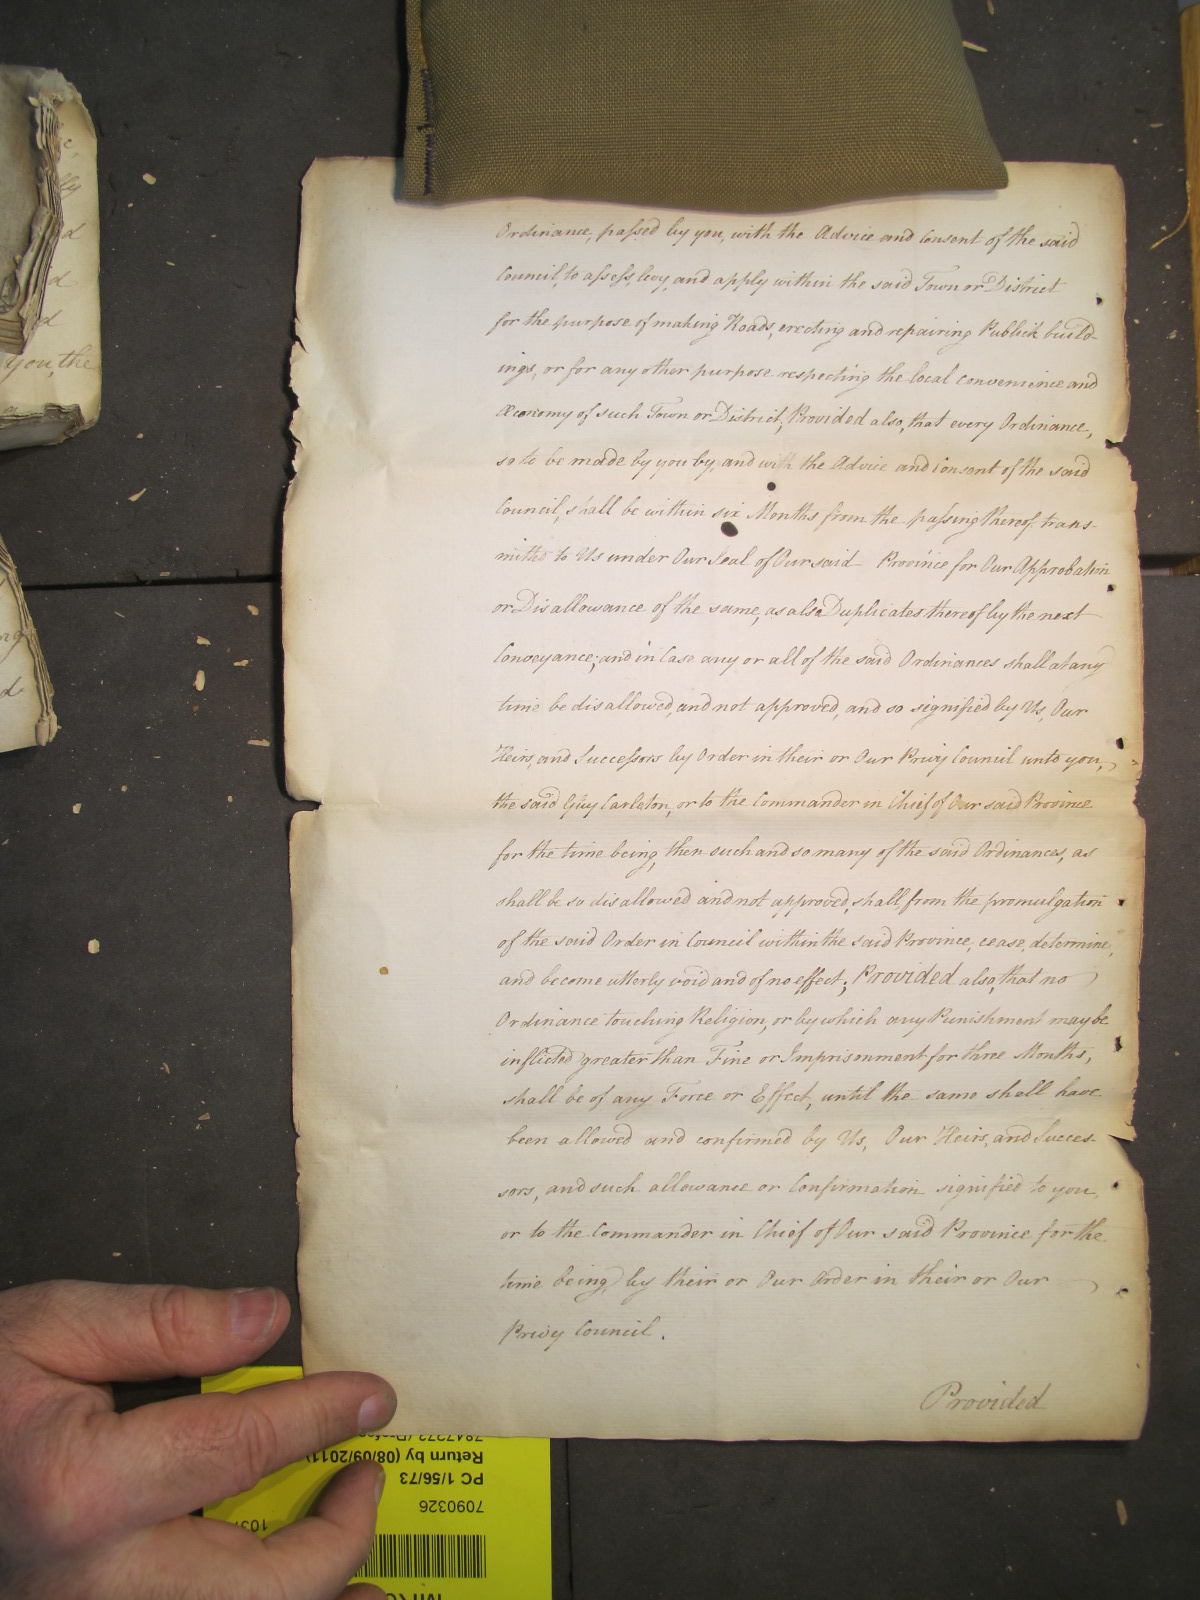 Ordinance, passed by you, with the Advice and Consent of the said
Council, to assess, levy, and apply within the said Town or District
for the purpose of making Roads, erecting and repairing Publick build-
ings, or for any other purpose respecting the local convenience and
Œconomy of such Town or District; Provided also, that every Ordinance,
so to be made by you by, and with the Advice and Consent of the said
Council, shall be within six Months from the passing thereof, trans-
mitted to Us under Our Seal of Our said Province for Our Approbation
or Disallowance of the same, as also Duplicates thereof by the next
Conveyance; and in Case any or all of the said Ordinances shall at any
time be disallowed, and not approved, and so signified by Us, Our
Heirs, and Successors by Order in their or Our Privy Council unto you,
the said Guy Carleton, or to the Commander in Chief of Our said Province
for the time being, then such and so many of the said Ordinances, as
shall be so disallowed and not approved, shall, from the promulgation
of the said Order in Council within the said Province, cease, determine,
and become utterly void and of no effect; Provided also, that no
Ordinance touching Religion, or by which any Punishment may be
inflicted greater than Fine or Imprisonment for three Months,
shall be of any Force or Effect, until the same shall have
been allowed and confirmed by Us, Our Heirs, and Succes-
sors, and such allowance or Confirmation signified to you,
or to the Commander in Chief of Our said Province for the
time being, by their or Our Order in their or Our
Privy Council.
Provided
you, the
Return by (08/09/2011)
PC 1/56/73
7090326